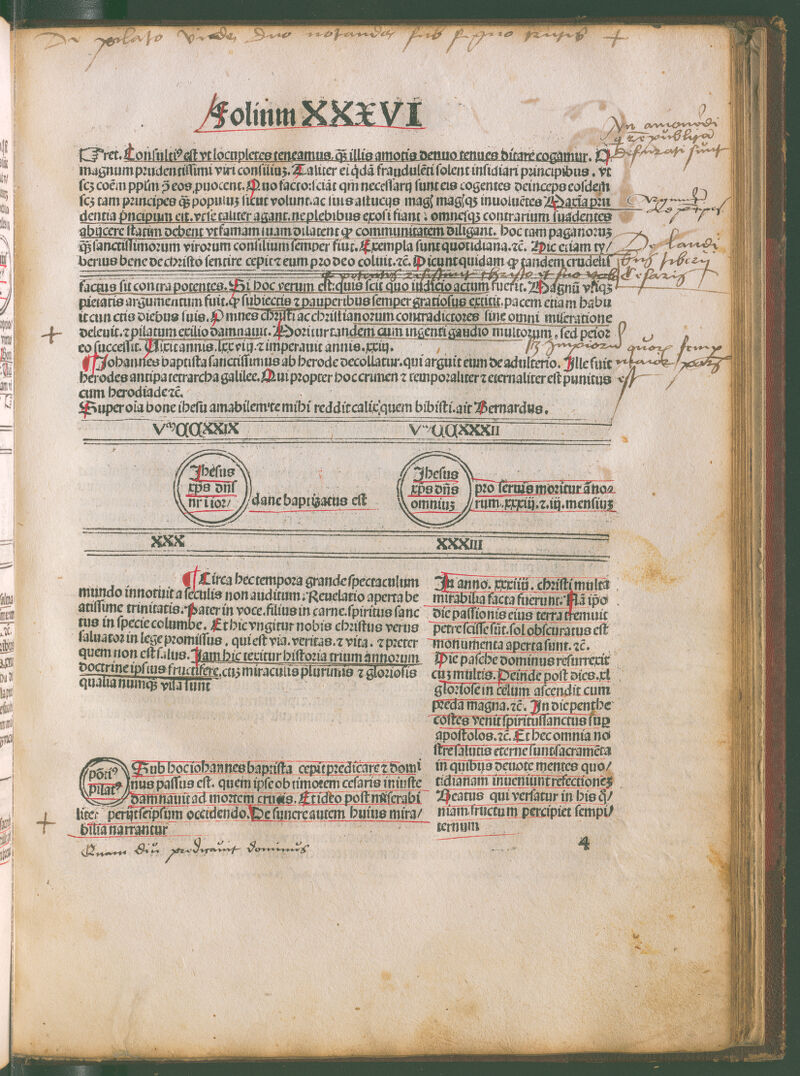 De pilato duo notanda sub signo crucis +
Folium XXXVI
Pret. Consultiꝰ est vt locupletes teneamus. qꝫ illis amotis denuo tenues ditare cogamur. O
magnum prudentissimi viri consiliuꝫ. Taliter ei q̄dā fraudulēti solent insidiari principibus. vt
scꝫ coēm pplm ꝫ eos puocent. Quo facto: sciāt qm necessarꝫ sunt eis cogentes deinceps eosdem
scꝫ tam principes qꝫ populuꝫ sicut volunt. ac suis astucijs magꝭ magꝭqꝫ inuoluētes Maxīa pru
dentia pncipum eit. vt se taliter agant. ne plebibus exosi fiant: omnesqꝫ contrarium suadentes
abijcere statim debent vt famam suam dilatent ꝙ communitatem diligant. hoc tam paganoruꝫ
qꝫ sanctissimorum virorum consilium semper fuit. Exempla sunt quotidiana. ꝛc. Hic etiam ty/
berius bene de christo sentire cepit ꝛ eum pro deo coluit. ꝛc. Dicunt quidam ꝙ tandem crudelis
factus sit contra potentes. Si hoc verum est: quis scit quo iudicio actum fuerit. Magnū vtiqꝫ
pietatis argumentum fuit. ꝙ subiectis ꝛ pauperibus semper gratiosus extitit. pacem etiam habu
it cun ctis diebus suis. Omnes christi ac christianorum contradictores sine omni miseratione
deleuit. ꝛ pilatum exilio damnauit. Moritur tandem cum ingenti gaudio multorum. sed peior
eo successit. Vixit annis. lxxviij. ꝛ imperauit annis. xxiij.
¶ Johannes baptista sanctissimus ab herode decollatur. qui arguit eum de adulterio. Ille fuit
herodes antipa tetrarcha galilee. Qui propter hoc crimen ꝛ temporaliter ꝛ eternaliter est punitus
cum herodiade ꝛc.
Super oīa bone ihesu amabilem te mihi reddit calix quem bibisti. ait Bernardus.
De laudi
bus tiberij
Cesaris
An amouēdi
a republica
defurati sunt
est
V CCXXIX
V CCXXXII
Jhesus
xp̄s dn̄s
nr̄ i ior/
dane baptiꝫatus est
Jhesus
xp̄s dn̄s
omniuꝫ
pro seruis moritur āno
rum. xxxiij. ꝛ. iij. mensiuꝫ
XXX
XXXIII
¶ Circa hec tempora grande spectaculum
mundo innotuit a seculis non auditum. Reuelatio aperta be
atissime trinitatis. Pater in voce. filius in carne. spiritus sanc
tus in specie columbe. Et hic vngitur nobis christus verus
saluator in lege promissus, qui est via. veritas. ꝛ vita. ꝛ preter
quem non est salus. Jam hic texitur historia trium annorum
doctrine ipsius fructifere. cuꝫ miraculis plurimis ꝛ gloriosis
qualia numqꝫ vlla sunt
In anno. xxxiiij. christi multa
mirabilia facta fuerunt. Nā ip̄o
die passionis eius terra tremuit
petre scisse sūt. sol obscuratus est
monumenta aperta sunt. ꝛc.
Die pasche dominus resurrexit
cuꝫ multis. Deinde post dies. xl
gloriose in celum ascendit cum
preda magna. ꝛc. In die penthe
costes venit spiritussanctus sup̄
apostolos. ꝛc. Et hec omnia no
stre salutis eterne sunt sacramēta
in quibus deuote mentes quo/
tidianam inueniunt refectioneꝫ
Beatus qui versatur in his q̄/
niam fructum percipiet sempi/
ternum
pōtiꝰ
pilatꝰ
Sub hoc iohannes baptista cepit predicare ꝛ domi
nus passus est. quem ipse ob timorem cesaris iniuste
damnauit ad mortem crucis. Et ideo post miserabi
liter perijt seipsum occidendo. De funere autem huius mira/
bilia narrantur
Quam diu predicauit dominus
4